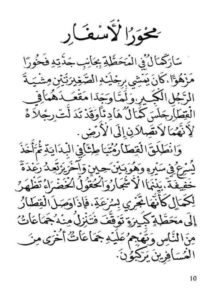 مِحْوَرُ الْأَسْفَارِ
سَارَ كَمَالٌ فِي الْمَحَطَّةِ بِجَانِبِ جَدَّتِهِ فَخُورًا
مَزْهُوًّا. كَانَ يَمْشِي بِرِجْلَيْهِ الصَّغِيرَتَيْنِ مِشْيَةَ
الرَّجُلِ الْكَبِيرِ. وَلَمَّا وَجَدَا مَقْعَدَهُمَا فِي
الْقِطَارِ جَلَسَ كَمَالٌ هَادِئًا وَقَدْ تَدَلَّتْ رِجْلَاهُ
لِأَنَّهُمَا لَا تَصِلَانِ إِلَى الْأَرْضِ.
وَانْطَلَقَ الْقِطَارُ مُتَبَاطِئًا فِي الْبِدَايَةِ ثُمَّ أَخَذَ
يُسْرِعُ فِي سَيْرِهِ وَهُوَ بَيْنَ حِينٍ وَآخَرَ يَرْتَعِدُ رِعْدَةً
خَفِيفَةً. بَيْنَمَا الْأَشْجَارُ وَالْحُقُولُ الْخَضْرَاءُ تَظْهَرُ
لِكَمَالٍ كَأَنَّهَا تَجْرِي بِسُرْعَةٍ. فَإِذَا وَصَلَ الْقِطَارُ
إِلَى مَحَطَّةٍ كَبِيرَةٍ تَوَقَّفَتْ فَتَنْزِلُ مِنْهُ جَمَاعَاتٌ
مِنَ النَّاسِ وَتَهْجُمُ عَلَيْهِ جَمَاعَاتٌ أُخْرَى مِنَ
الْمُسَافِرِينَ يَرْكَبُونَ.
10